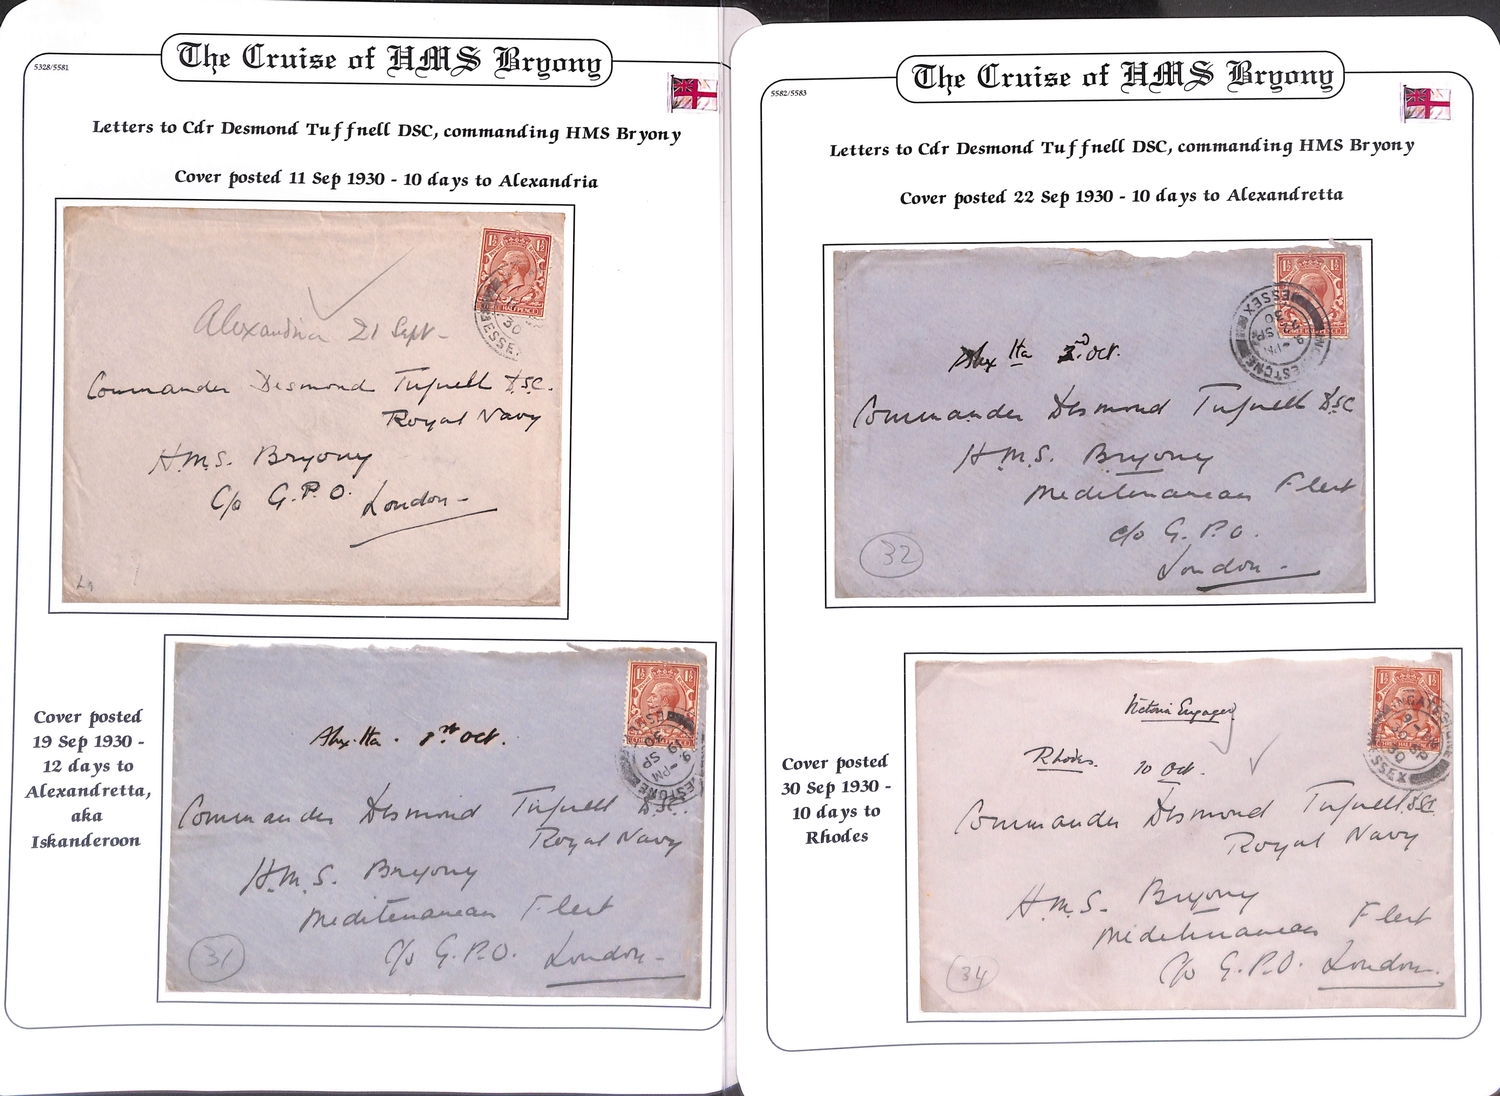 5328/5581
The Cruise of HMS Bryony
Letters to Cdr Desmond Tuffnell DSC, commanding HMS Bryony
Cover posted 11 Sep 1930 - 10 days to Alexandria
1½ 1½
Alexandria 21 Sept-
Commander Desmond Tufnell DSC.
Royal Navy
H.M.S. Bryony
C/o G.P.O. London -
Cover posted
19 Sep 1930 -
12 days to
Alexandretta,
aka
Iskanderoon
1½ 1½
9 - PM
19 SP
30
Alex.tta . 1st Oct.
Commander Desmond Tufnell D.S.C.
Royal Navy
H.M.S. Bryony
Mediterranean Fleet
C/o G.P.O. London -
31
5582/5583
The Cruise of HMS Bryony
Letters to Cdr Desmond Tuffnell DSC, commanding HMS Bryony
Cover posted 22 Sep 1930 - 10 days to Alexandretta
1½ 1½
9 - PM
22 SP
30
ESSEX
Alex tta 2nd Oct.
Commander Desmond Tufnell DSC
H.M.S. Bryony
Mediterranean Fleet
c/o G.P.O.
London -
32
Cover posted
30 Sep 1930 -
10 days to
Rhodes
1½ 1½
Rhodes. 10 Oct.
Commander Desmond Tufnell DSC.
Royal Navy
H.M.S. Bryony
Mediterranean Fleet
C/o G.P.O. London.
34